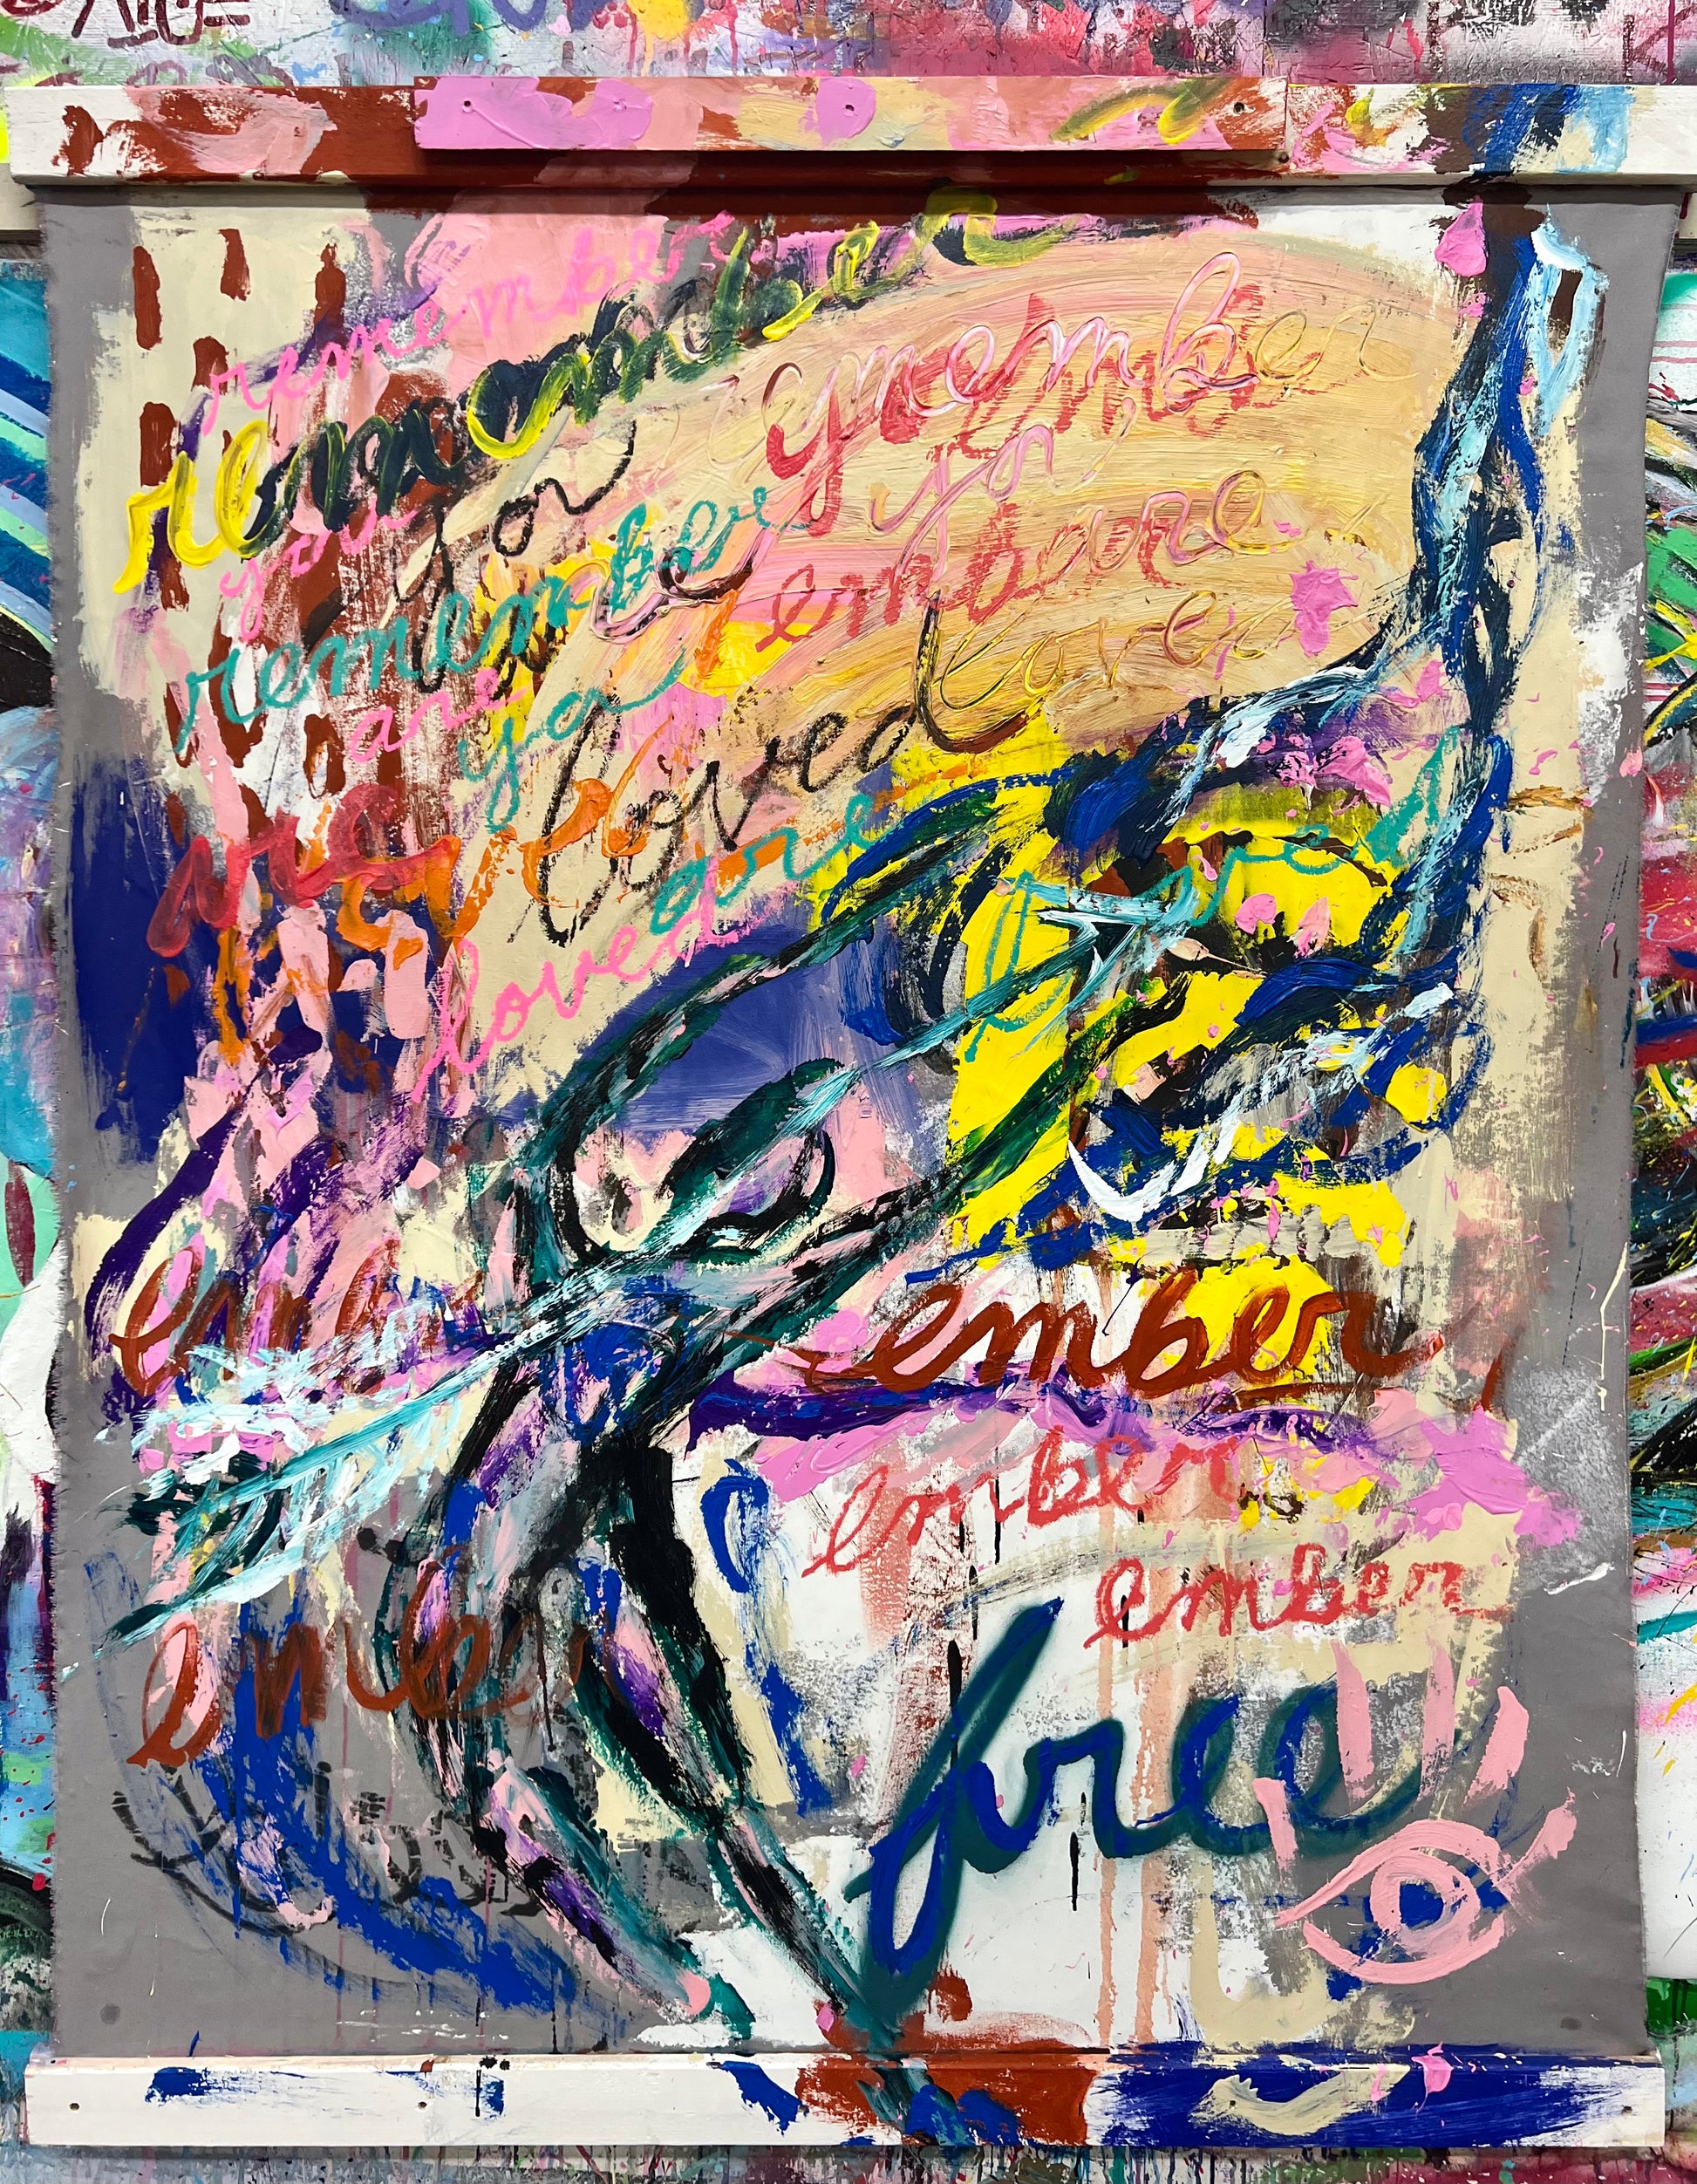 remember
remember
remember
you
you
you
remember
are
you
ember are
loved
are
loved
are
loved
loved
ember
ember
ember
ember
ember
free